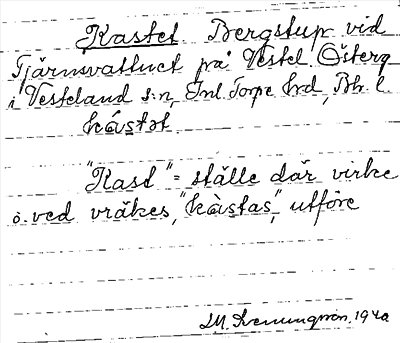 Kastet. Bergstup vid
Tjärnsvattnet på Vestel Österg
i Vesteland s:n, Inl. Torpe hrd, Bh. l.
kástət
"Kast" = ställe där virke
o. ved vräkes, "kàstas", utföre
LM. Svenungsson, 1940